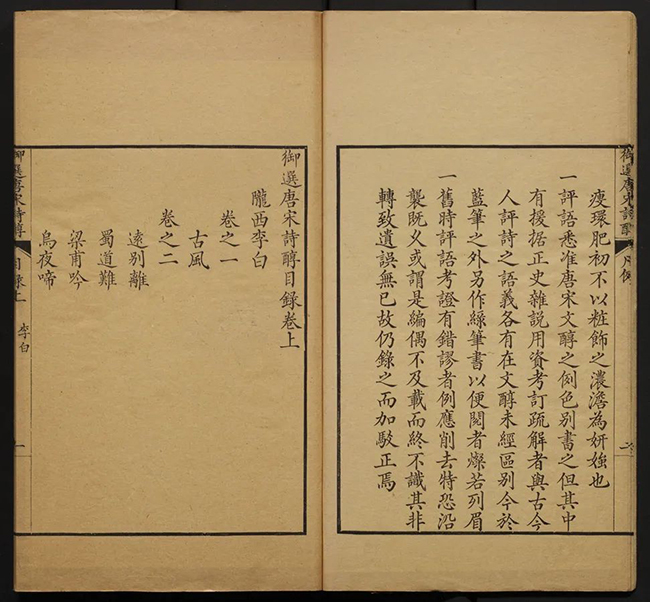 御選唐宋詩醇 凡例
瘦環肥初不以粧飾之濃澹為妍媸也
一評語悉准唐宋文醇之例色別書之但其中
有援据正史雜説用資考訂疏解者與古今
人評詩之語義各有在文醇未經區別今於
藍筆之外另作綠筆書以便閱者燦若列眉
一舊時評語考證有錯謬者例應削去特恐沿
襲既乆或謂是編偶不及載而終不識其非
轉致遺誤無已故仍錄之而加駁正焉
御選唐宋詩醇目録卷上
隴西李白
卷之一
古風
卷之二
逺别離
蜀道難
梁甫吟
烏夜啼
御選唐宋詩醇 目録上 李白 一